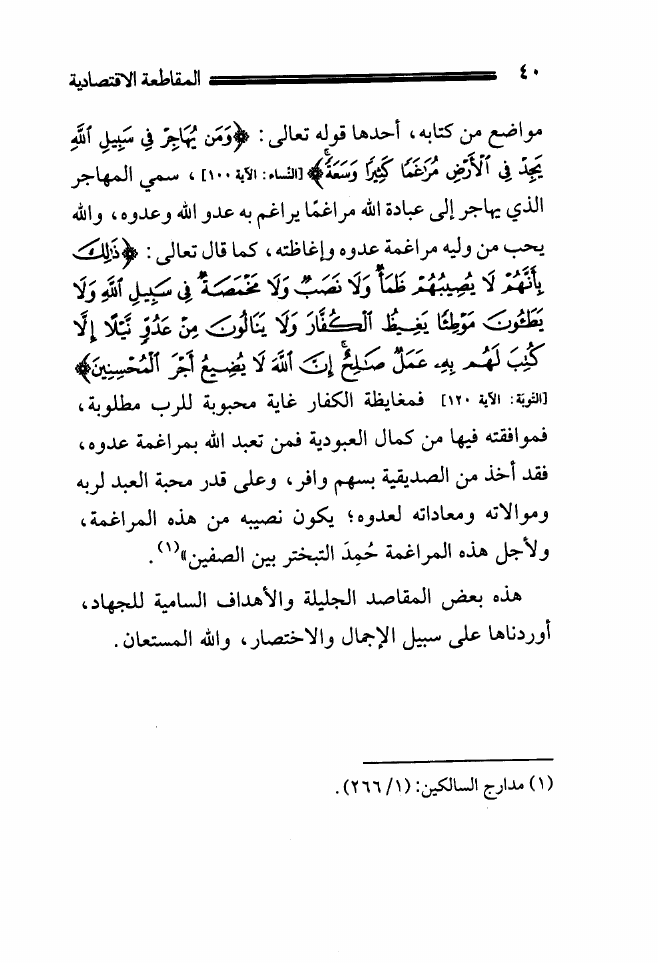 ٤٠ المقاطعة الاقتصادية
مواضع من كتابه، أحدها قوله تعالى: ﴿وَمَن يُهَاجِرْ فِي سَبِيلِ ٱللَّهِ
يَجِدْ فِي ٱلْأَرْضِ مُرَٰغَمًا كَثِيرًا وَسَعَةً﴾ [النساء: الآية ١٠٠]، سمي المهاجر
الذي يهاجر إلى عبادة الله مراغمًا يراغم به عدو الله وعدوه، والله
يحب من وليه مراغمة عدوه وإغاظته، كما قال تعالى: ﴿ذَٰلِكَ
بِأَنَّهُمْ لَا يُصِيبُهُمْ ظَمَأٌ وَلَا نَصَبٌ وَلَا مَخْمَصَةٌ فِي سَبِيلِ ٱللَّهِ وَلَا
يَطَئُونَ مَوْطِئًا يَغِيظُ ٱلْكُفَّارَ وَلَا يَنَالُونَ مِنْ عَدُوٍّ نَّيْلًا إِلَّا
كُتِبَ لَهُم بِهِۦ عَمَلٌ صَٰلِحٌ ۚ إِنَّ ٱللَّهَ لَا يُضِيعُ أَجْرَ ٱلْمُحْسِنِينَ﴾
[التوبة: الآية ١٢٠] فمغايظة الكفار غاية محبوبة للرب مطلوبة،
فموافقته فيها من كمال العبودية فمن تعبد الله بمراغمة عدوه،
فقد أخذ من الصديقية بسهم وافر، وعلى قدر محبة العبد لربه
وموالاته ومعاداته لعدوه؛ يكون نصيبه من هذه المراغمة،
ولأجل هذه المراغمة حُمِدَ التبختر بين الصفين»(١).
هذه بعض المقاصد الجليلة والأهداف السامية للجهاد،
أوردناها على سبيل الإجمال والاختصار، والله المستعان.
(١) مدارج السالكين: (١/ ٢٦٦).